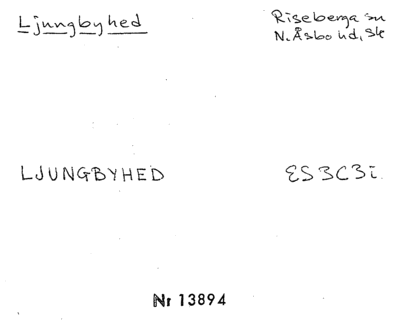 Ljungbyhed
Riseberga sn
N. Åsbo hd, Sk
LJUNGBYHED
ES3C3i
Nr 13894